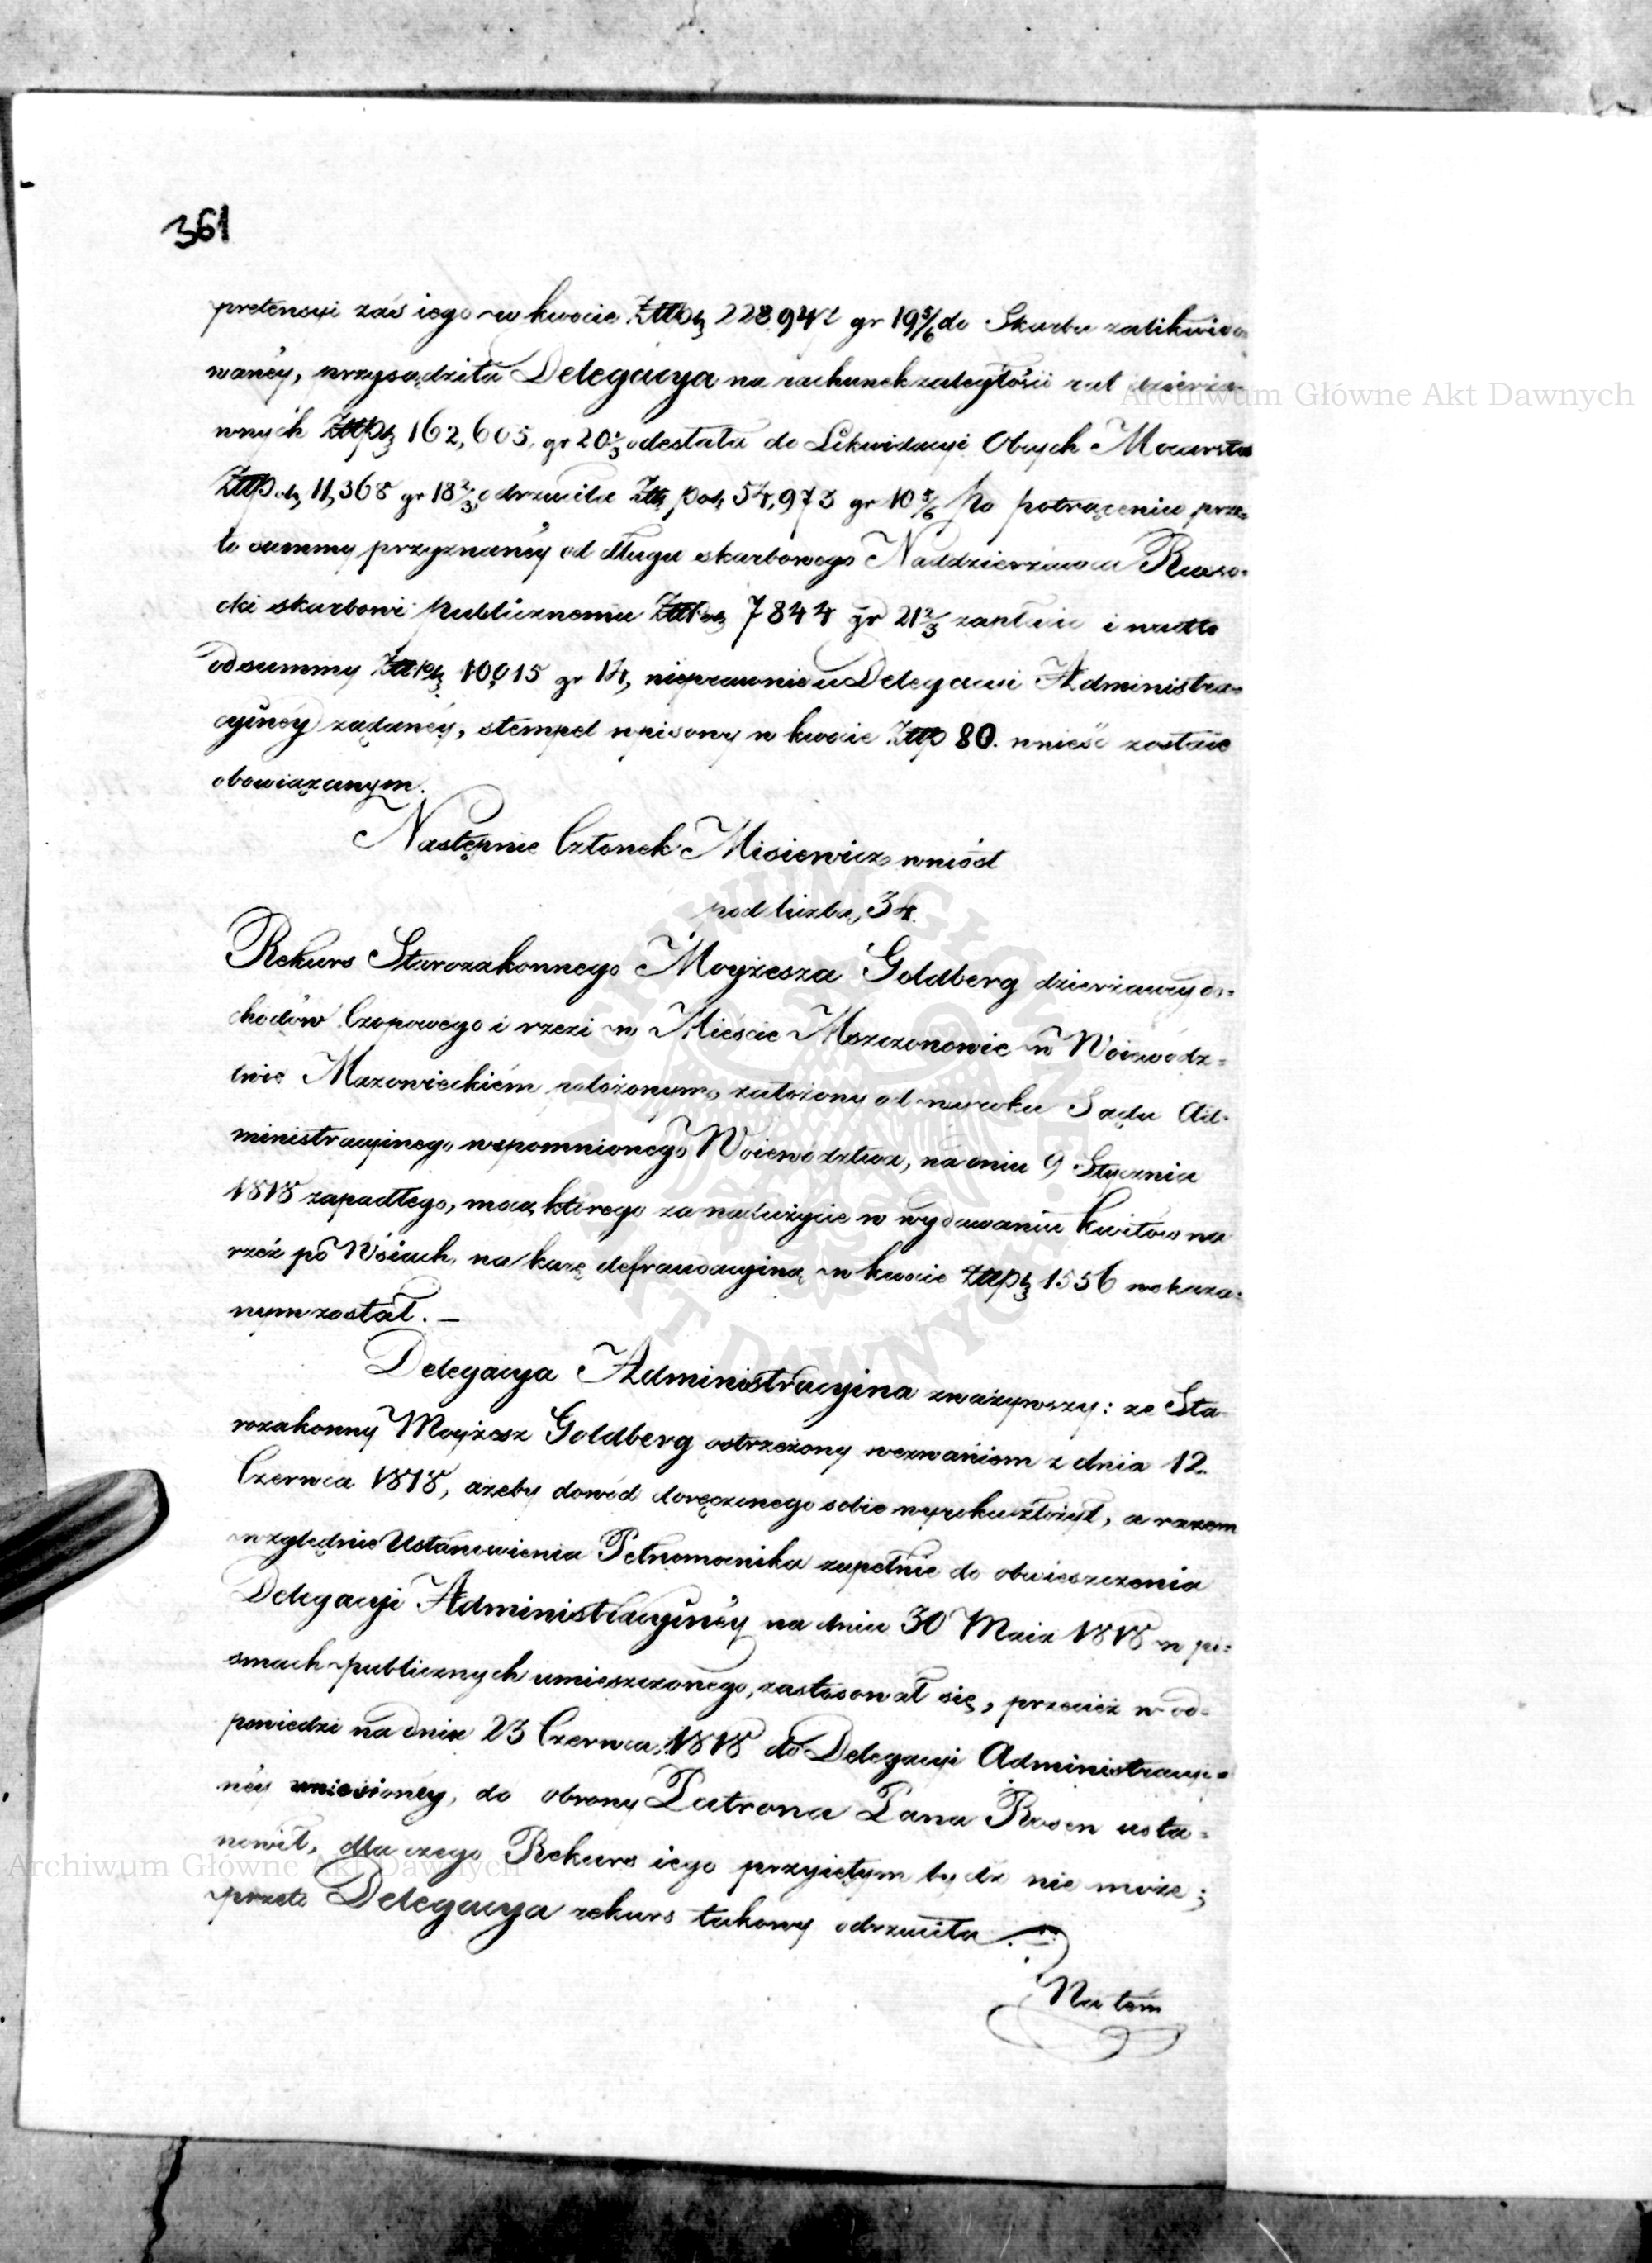 361
pretensyi zaś iego w kwocie Złłpols 228947 gr 19 5/6 do Skarbu zalikwido=
waney, przysądziła Delegacya na rachunek zaległości rat dzierża=
wnych Złłpols 162,605, gr 20 1/3 odesłała do Likwidacyi Obcych Mocarstw
Złłpols 11,368 gr 18 2/3, odrzuciła Złł pols 54,973 gr 10 5/6 Po potrąceniu prze=
to summy przyznanéy od długu skarbowego Naddzierżawca Russo=
cki skarbowi publicznemu Złłpols 7844 gr 21 2/3 zapłacić i nadto
od summy Złłpols 10,015 gr 14, nieprawnie u Delegacyi Administra=
cyinéy żądanéy, stempel wpisowy w kwocie Złłp 80. wnieść zostaie
obowiązanym.
Następnie Członek Misiewicz wniósł
pod liczbą, 34.
Rekurs Starozakonnego Moyżesza Goldberg dzierżawcy do=
chodów Czopowego i rzezi w Mieście Mszczonowie w Woiewódz=
twie Mazowieckiém położonym, założony od wyroku Sądu Ad=
ministracyinego wspomnionego Woiewództwa, na dniu 9 Stycznia
1818 zapadłego, mocą którego za nadużycie w wydawaniu kwitów na
rzeź po Wsiach, na karę defraudacyiną w kwocie Złłpols 1556 wskaza=
nym został. —
Delegacya Administracyina zważywszy: że Sta=
rozakonny Moyżesz Goldberg ostrzeżony wezwaniem z dnia 12.
Czerwca 1818, ażeby dowód doręczonego sobie wyroku złożył, a razem
względnie Ustanowienia Pełnomocnika zupełnie do obwieszczenia
Delegacyi Administracyinéy na dniu 30 Maia 1818 w pi=
smach publicznych umieszczonego, zastosował się, przecież w od=
powiedzi na dniu 23 Czerwca, 1818 do Delegacyi Administracyi=
néy wniesionéy, do obrony Patrona Pana Rosen usta=
nowił, dla czego Rekurs iego przyiętym bydź nie może;
przeto Delegacya rekurs takowy odrzuciła
Na tém
Archiwum Główne Akt Dawnych
Archiwum Główne Akt Dawnych
ARCHIWUM GŁÓWNE AKT DAWNYCH